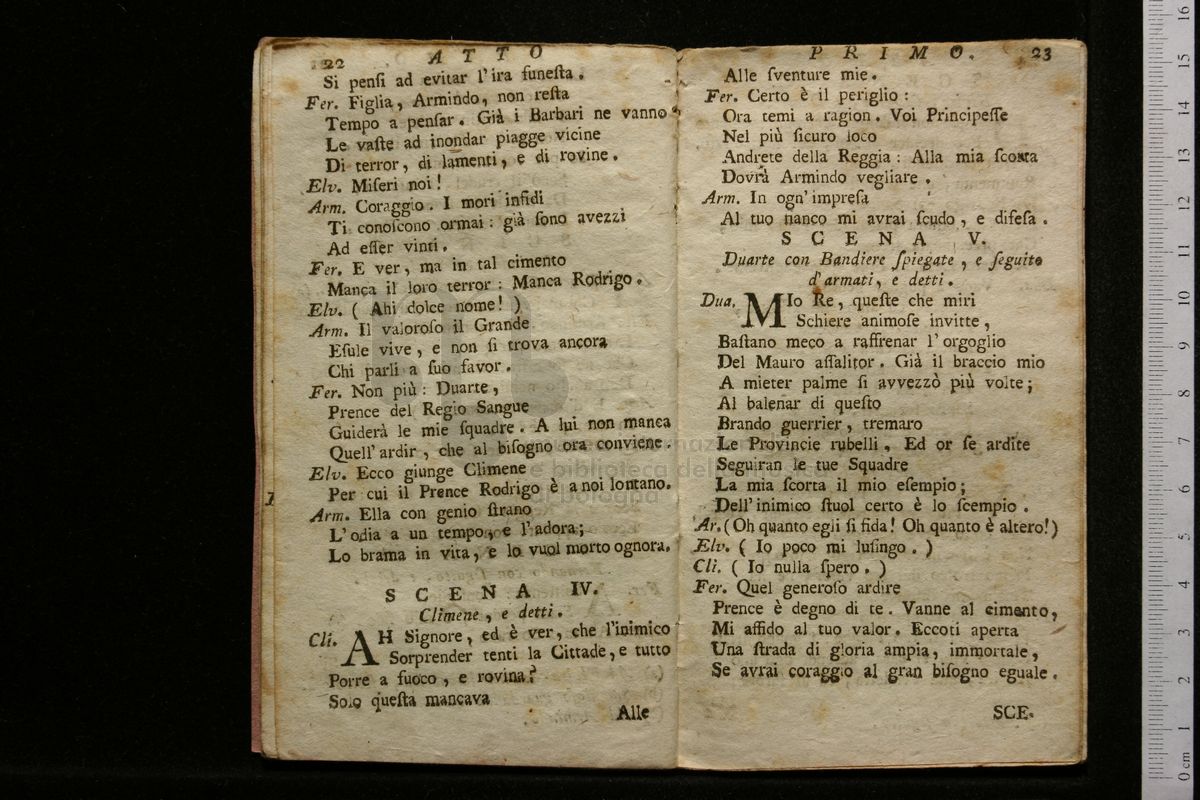 22 ATTO
Si pensi ad evitar l'ira funesta.
Fer. Figlia, Armindo, non resta
Tempo a pensar. Già i Barbari ne vanno
Le vaste ad inondar piagge vicine
Di terror, di lamenti, e di rovine.
Elv. Miseri noi!
Arm. Coraggio. I mori infidi
Ti conoscono ormai: già sono avezzi
Ad esser vinti.
Fer. E ver, ma in tal cimento
Manca il loro terror: Manca Rodrigo.
Elv. ( Ahi dolce nome! )
Arm. Il valoroso il Grande
Esule vive, e non si trova ancora
Chi parli a suo favor.
Fer. Non più: Duarte,
Prence del Regio Sangue
Guiderà le mie squadre. A lui non manca
Quell'ardir, che al bisogno ora conviene.
Elv. Ecco giunge Climene
Per cui il Prence Rodrigo è a noi lontano.
Arm. Ella con genio strano
L'odia a un tempo, e l'adora;
Lo brama in vita, e lo vuol morto ognora.
SCENA IV.
Climene, e detti.
Cli. AH Signore, ed è ver, che l'inimico
Sorprender tenti la Cittade, e tutto
Porre a fuoco, e rovina?
Solo questa mancava
Alle
PRIMO. 23
Alle sventure mie.
Fer. Certo è il periglio:
Ora temi a ragion. Voi Principesse
Nel più sicuro loco
Andrete della Reggia: Alla mia scorta
Dovrà Armindo vegliare.
Arm. In ogn'impresa
Al tuo fianco mi avrai scudo, e difesa.
SCENA V.
Duarte con Bandiere spiegate, e seguito
d'armati, e detti.
Dua. MIo Re, queste che miri
Schiere animose invitte,
Bastano meco a raffrenar l'orgoglio
Del Mauro assalitor. Già il braccio mio
A mieter palme si avvezzò più volte;
Al balenar di questo
Brando guerrier, tremaro
Le Provincie rubelli, Ed or se ardite
Seguiran le tue Squadre
La mia scorta il mio esempio;
Dell'inimico stuol certo è lo scempio.
Ar. (Oh quanto egli si fida! Oh quanto è altero!)
Elv. ( Io poco mi lusingo. )
Cli. ( Io nulla spero. )
Fer. Quel generoso ardire
Prence è degno di te. Vanne al cimento,
Mi affido al tuo valor. Eccoti aperta
Una strada di gloria ampia, immortale,
Se avrai coraggio al gran bisogno eguale.
SCE-